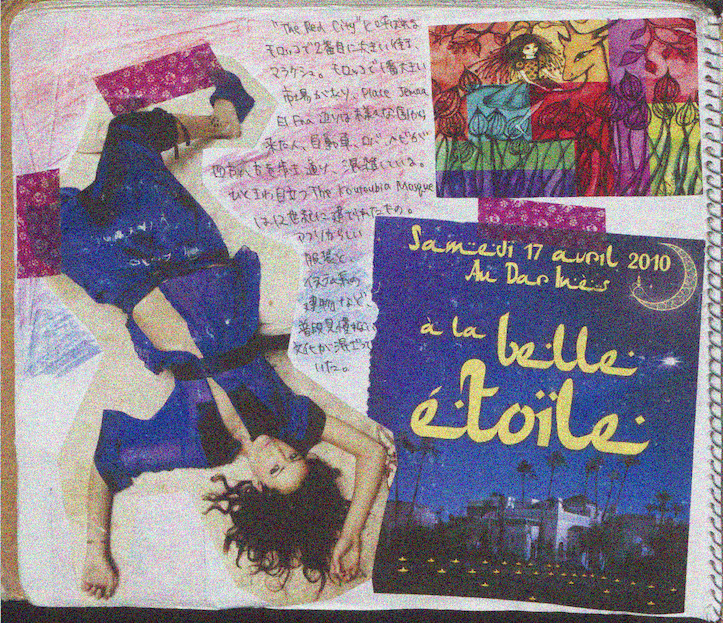 "The Red City"と呼ばれる
モロッコで2番目に大きい街
マラケシュ。モロッコで1番大きい
市場があり、Place Jemaa
El Fna 辺りは様々な国から
来た人、自転車、ロバ、ヘビが
四方八方を歩き通り、混雑している。
ひときわ目立つThe Koutoubia Mosque
は12世紀に建てられたもの。
アフリカらしい
服装と
イスラム系の
建物など
普段見慣れない
文化が混ざって
いた。
Samedi 17 avril 2010
Au Dar Inès
à la belle
étoile